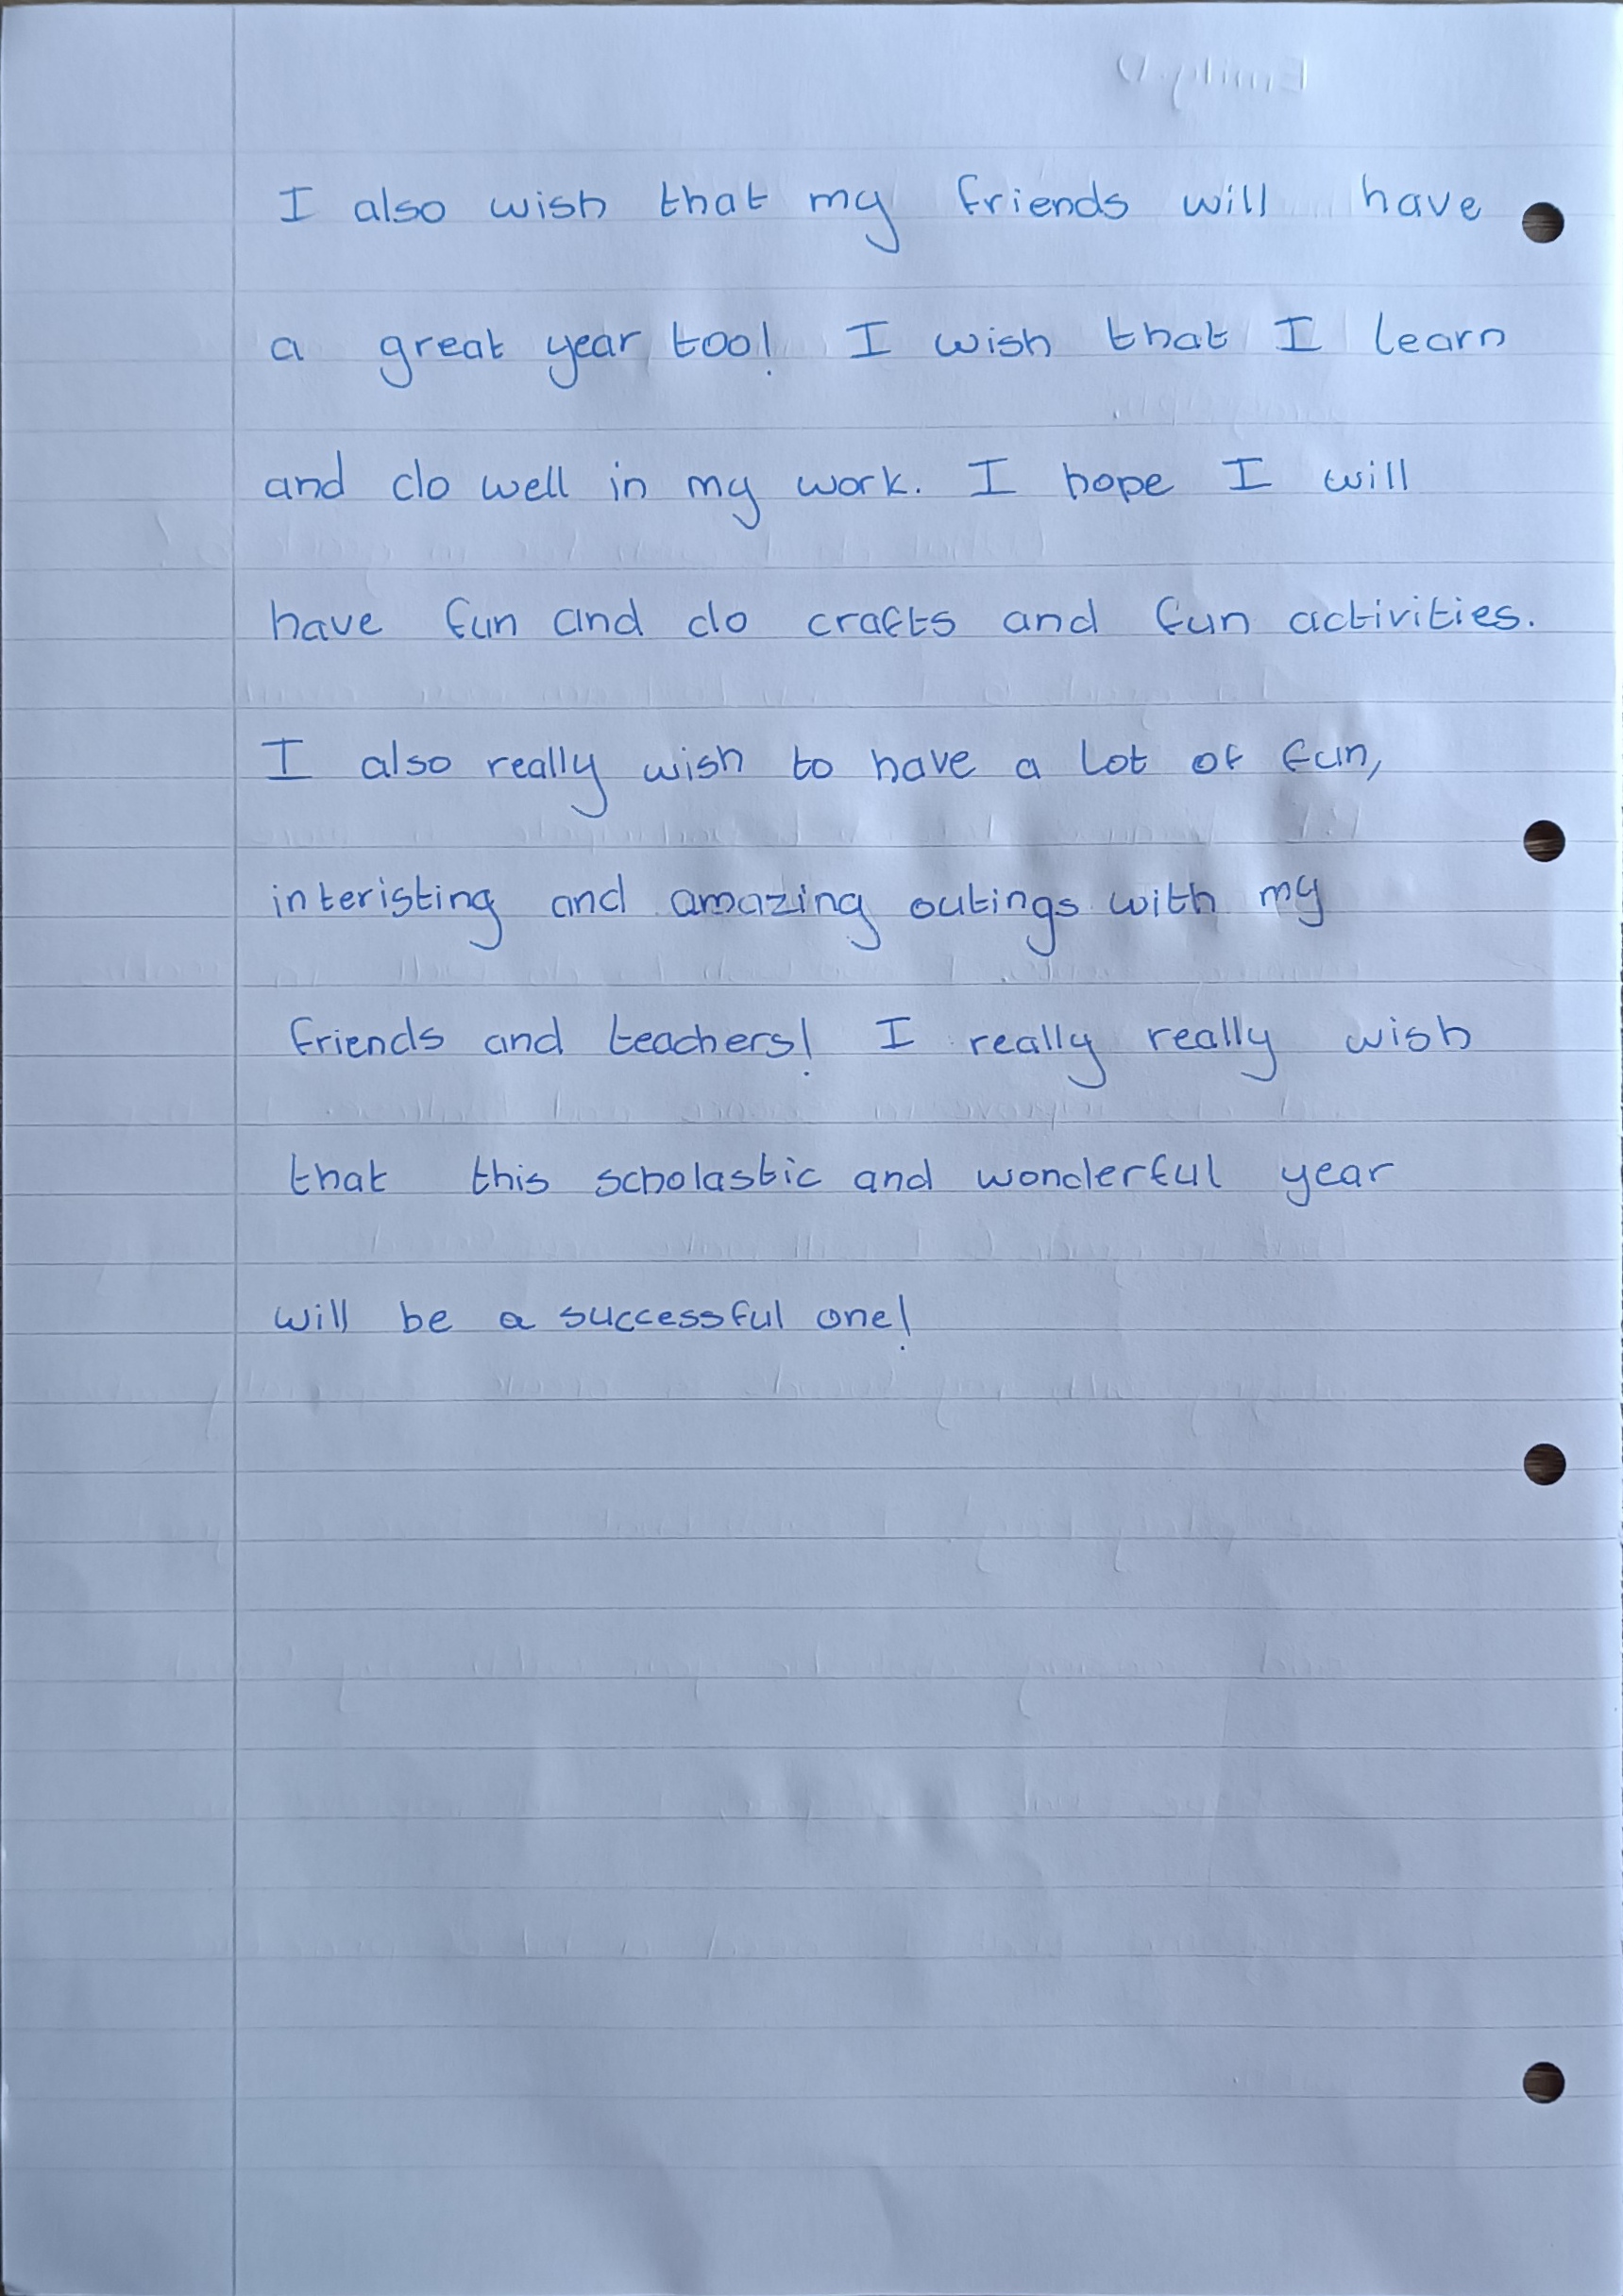 I also wish that my friends will have
a great year too! I wish that I learn
and do well in my work. I hope I will
have fun and do crafts and fun activities.
I also really wish to have a lot of fun,
interisting and amazing outings with my
friends and teachers! I really really wish
that this scholastic and wonderful year
will be a successful one!